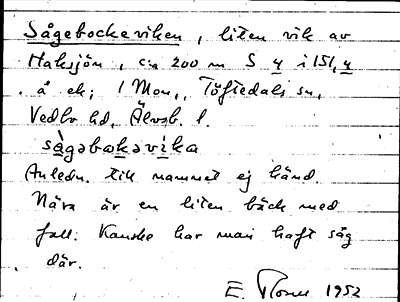 Sågebockeviken, liten vik av
Haksjön, ca 200 m S 4 i 151,4
å ek; 1 Mon, Töftedals sn,
Vedbo hd, Älvsb. l.
sågəbåkəvika
Anledn. till namnet ej känd.
Nära är en liten bäck med
fall. Kanske har man haft såg
där.
E. 1952